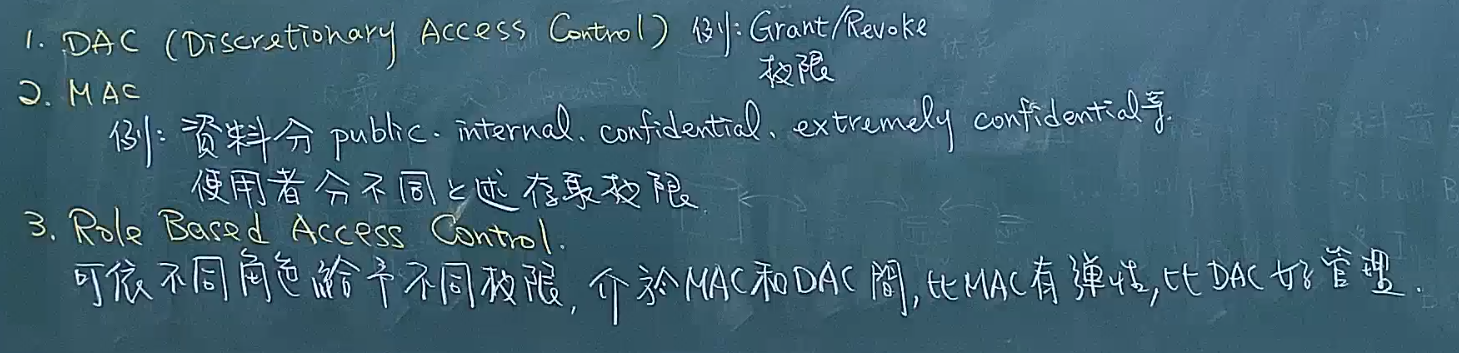 1. DAC (Discretionary Access Control) 例:Grant/Revoke
权限
2. MAC
例:資料分 public. internal、confidential、extremely confidential等.
使用者分不同上述存取权限.
3. Role Based Access Control.
可依不同角色給予不同权限,介於MAC和DAC間,比MAC有彈性,比DAC好管理.